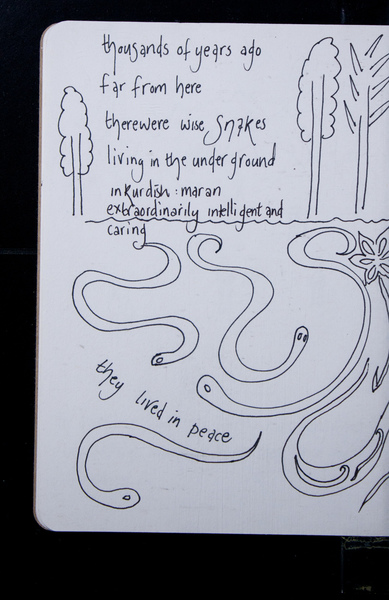 thousands of years ago
far from here
therewere wise snakes
living in the underground
in kurdish : maran
extraordinarily intelligent and
caring
they lived in peace